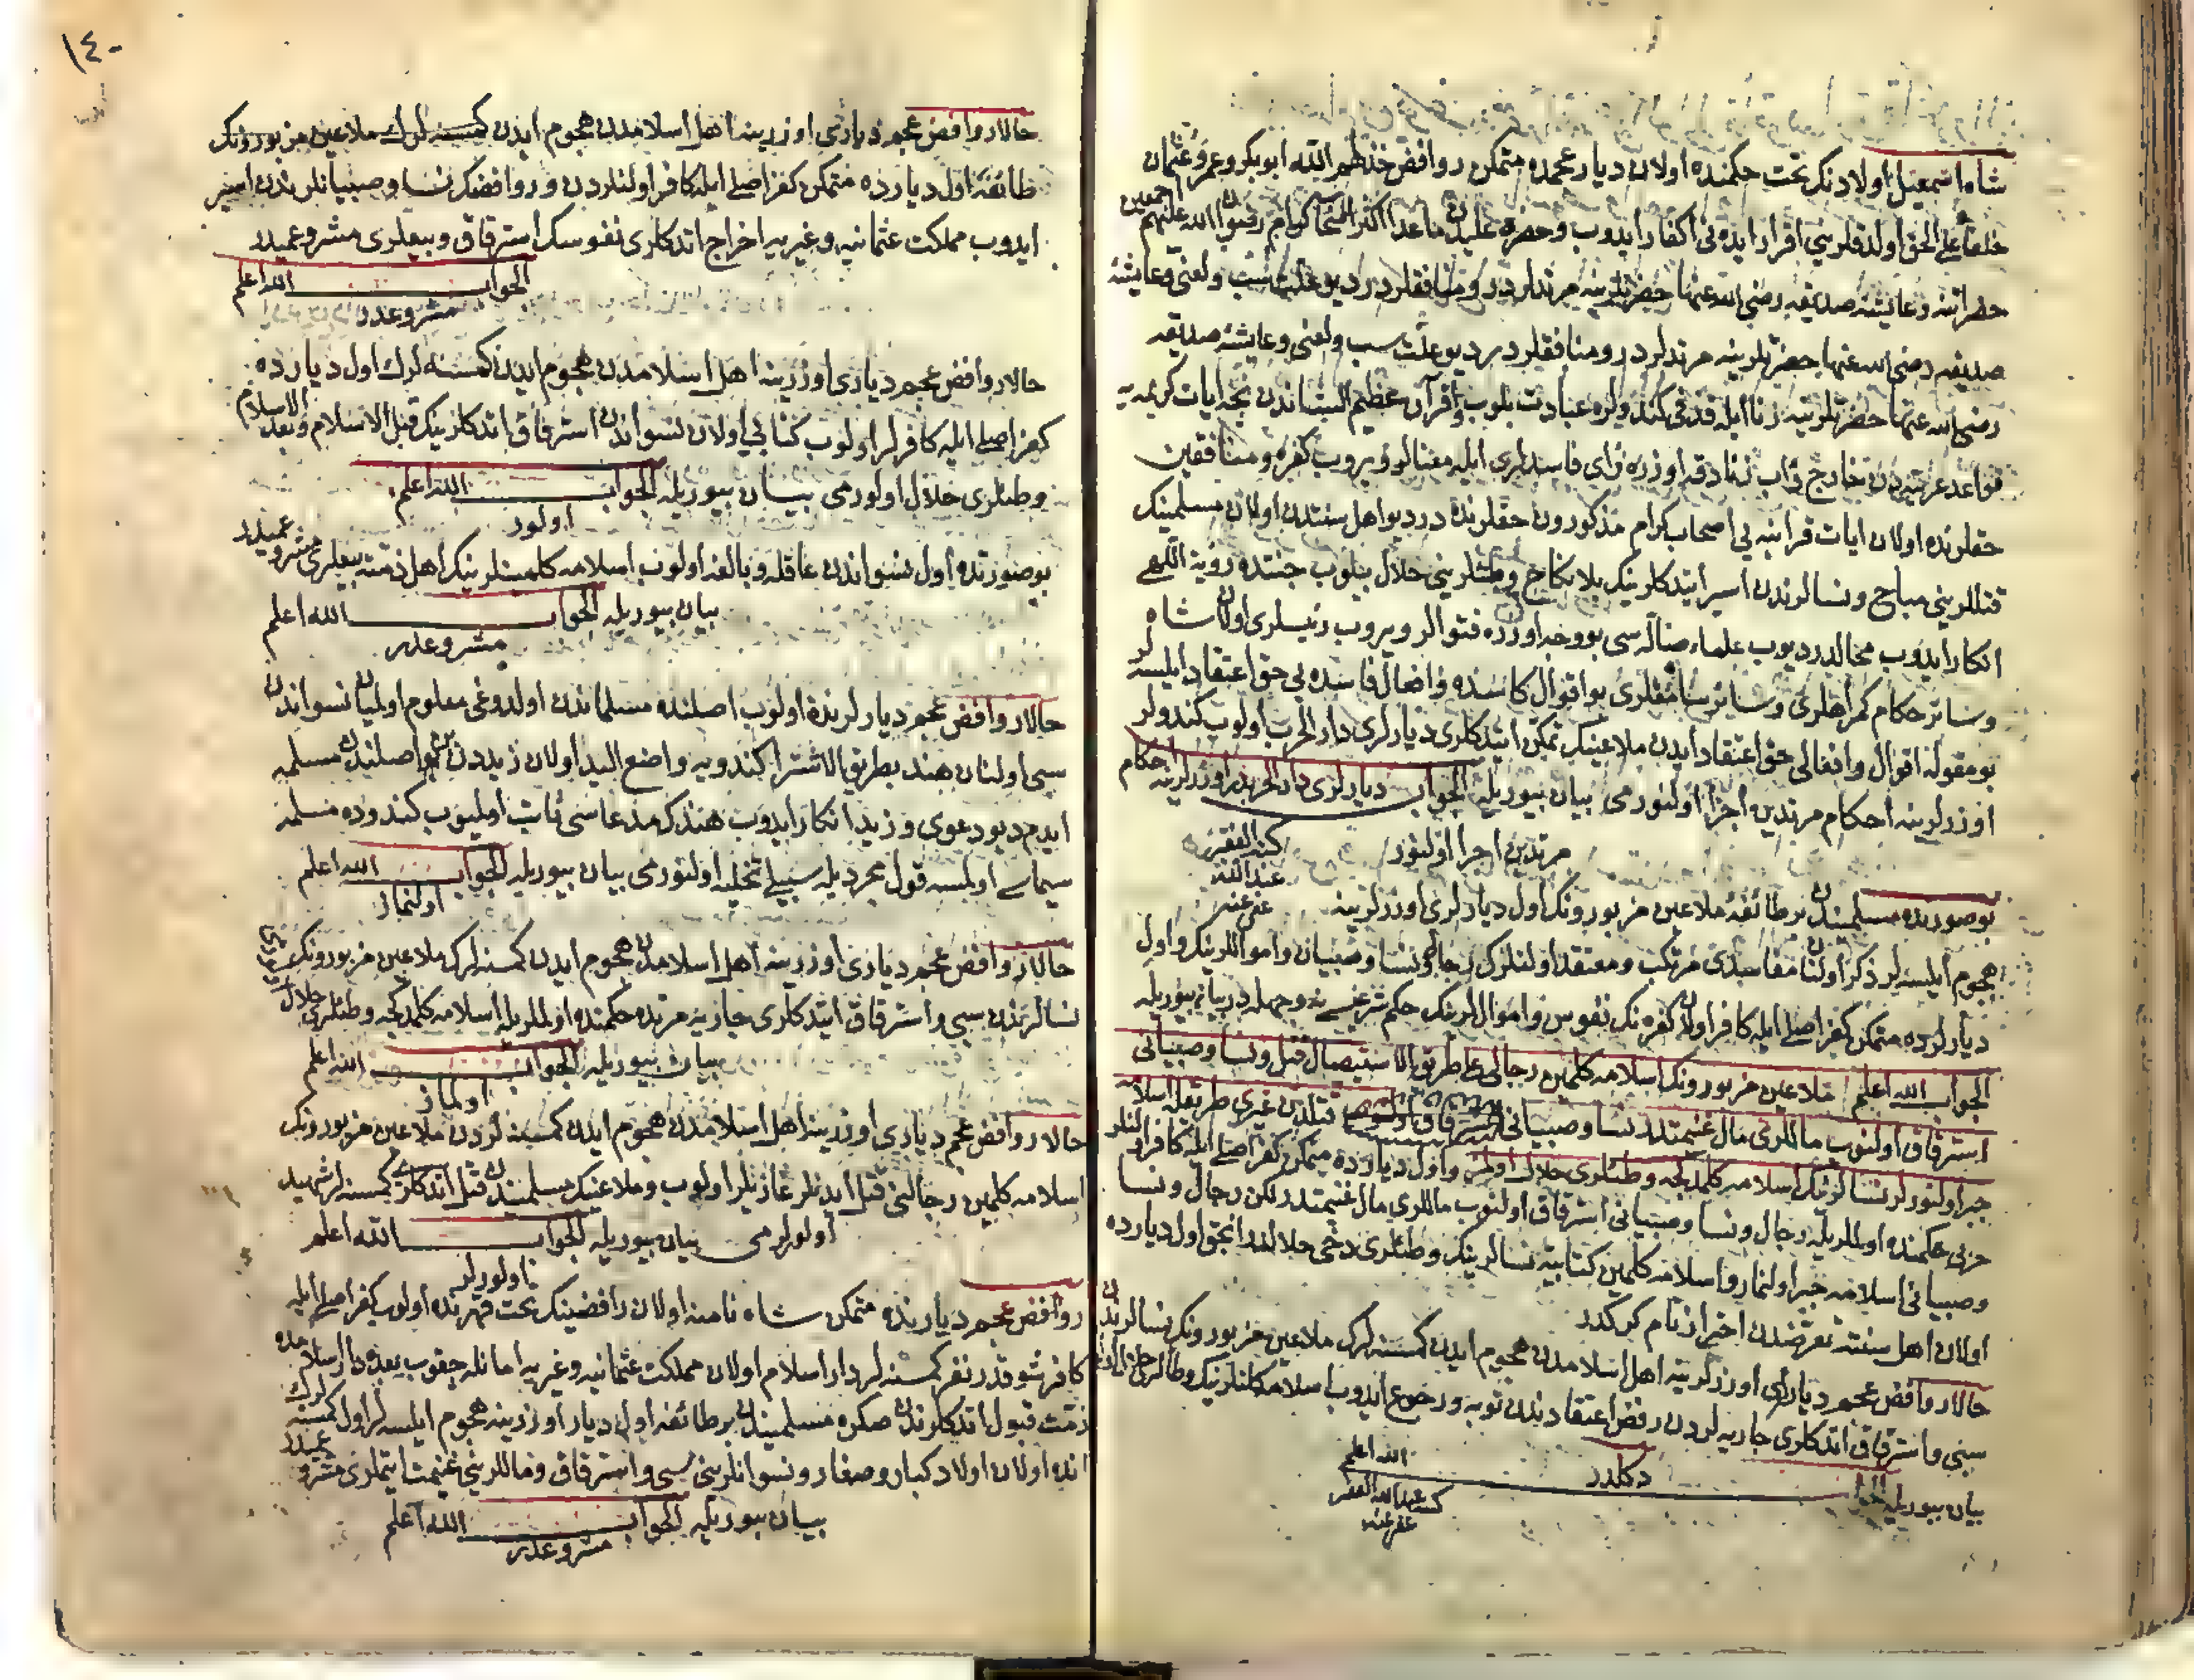 شاه اسمعیل اولادنك تحت حكمنده اولان دیار عجمده متمكن روافض خذلهم الله ابوبكر و عمر و عثمان
خلفاء علی الحق اولدقلرینی اقرار ایدنی اكفار ایدوب و حضرت علیدن ماعدا اكثر اصحاب كرام رضوان الله علیهم اجمعین
حضراتنه و عایشه صدیقه رضی الله عنها حضرتلرینه مرتدلردر و منافقلردر دیو علنا سب و لعنی و عایشه
صدیقه رضی الله عنها حضرتلرینه مرتدلردر و منافقلردر دیو علنا سب و لعنی و عایشه صدیقه
رضی الله عنها حضرتلرینه زنا ایله قذفی كندولره عبادت بلوب و قرآن عظیم الشاندن نیجه ایات كریمه یه
قواعد عربیه دن خارج زنادقه اوزره رای فاسدلری ایله معنالر ویروب كفره و منافقین
حقلرنده اولان ایات قرانیه یی اصحاب كرام مذكورون حقلرنده در دیو اهل سنتدن اولان مسلمینك
قتللرینی مباح و نسالرندن اسیر ایتدكلرینك بلا نكاح وطئلرینی حلال بیلوب جنتده رؤیة اللهی
انكار ایدوب محالدر دیوب علماء ضاله سی بو وجه اوزره فتوالر ویروب رئیسلری اولان شاه
و سائر حكام كمراهلری و سائر سامقلری بو اقوال كاسده و افعال فاسده یی حق اعتقاد ایلسه لر
بو مقوله اقوال و افعالی حق اعتقاد ایدن ملاعینك تمكن ایتدكلری دیارلری دار الحرب اولوب كندولر
اوزرلرینه احكام مرتدین اجرا اولنورمی بیان بیوریله الجواب دیارلری دار الحربدر اوزرلرینه احكام
مرتدین اجرا اولنور
كتبه الفقیر
عبدالله
عفی عنه
بو صورتده مسلمیندن بر طائفه ملاعین مزبورونك اول دیارلری اوزرلرینه
هجوم ایلسه لر ذكر اولنان مفاسدی مرتكب و معتقد اولنلرك رجال و نسا و صبیان و اموالرینك و اول
دیارلرده متمكن كفر اصلی ایله كافر اولان كفره نك نفوس و اموالرینك حكم شرعیسی نه وجهله در بیان بیوریله
الجواب الله اعلم ملاعین مزبورونك اسلامه كلمین رجالی علی طریق الاستیصال قتل و نسا و صبیانی
استرقاق اولنوب ماللری مال غنیمتدر نسا و صبیانی قتلدن غیری طریقله اسلامه
جبر اولنورلر نسالرینك اسلامه كلمدكجه وطئلری حلال اولمز و اول دیارده متمكن كفر اصلی ایله كافر اولنلر
حربی حكمنده اولملریله رجال و نسا و صبیانی استرقاق اولنوب ماللری مال غنیمتدر لكن رجال و نسا
و صبیانی اسلامه جبر اولنمازلر و اسلامه كلمین كتابیه نسالرینك وطئلری دخی حلالدر انجق اول دیارده
اولان اهل سنته تعرضدن احتراز تام كركدر
حالا روافض عجم دیارلری اوزرلرینه اهل اسلامدن هجوم ایدن كمسنه لرك ملاعین مزبورونك نسالرندن
سبی و استرقاق اتدكلری جاریه لردن رفض اعتقادندن توبه و رجوع ایدوب اسلامه كلنلرینك وطئلری حلال
بیان بیوریله الجواب الله اعلم
دكلدر
كتبه عبدالله الفقیر
عفی عنه
١٤٠
حالا روافض عجم دیاری اوزرینه اهل اسلامدن هجوم ایدن كمسنه لرك ملاعین مزبورونك
طائفه اول دیارده متمكن كفر اصلی ایله كافر اولنلردن و روافضك نسا و صبیانلرندن اسیر
ایدوب مملكت عثمانیه و غیریه اخراج اتدكلری نفوسك استرقاق و بیعلری مشروعمیدر
الجواب الله اعلم
مشروعدر
حالا روافض عجم دیاری اوزرینه اهل اسلامدن هجوم ایدن كمسنه لرك اول دیارده
كفر اصلی ایله كافرلر اولوب كتابی اولان نسواندن استرقاق اتدكلرینك قبل الاسلام و بعد الاسلام
وطئلری حلال اولورمی بیان بیوریله الجواب الله اعلم
اولور
بو صورتده اول نسواندن عاقله و بالغه اولوب اسلامه كلمینلرینك اهل ذمته بیعلری مشروعمیدر
بیان بیوریله الجواب الله اعلم
مشروعدر
حالا روافض عجم دیارلرنده اولوب اصلنده مسلماندن اولدوغی معلوم اولمیان نسواندن
سبی اولنان هند بطریق الاشترا كندویه واضع الید اولان زیددن بن اصلنده مسلمه
ایدم دیو دعوی و زید انكار ایدوب هندك مدعاسی ثابت اولمیوب كندوده مسلمه
سیماسی اولمسه قول مجردیله سبیلی تخلیه اولنورمی بیان بیوریله الجواب الله اعلم
اولنماز
حالا روافض عجم دیاری اوزرینه اهل اسلامدن هجوم ایدن كمسنه لرك ملاعین مزبورونك
نسالرندن سبی و استرقاق ایتدكلری جاریه مرتده حكمنده اولملریله اسلامه كلمدكجه وطئلری حلال
بیان بیوریله الجواب الله اعلم
اولماز
حالا روافض عجم دیاری اوزرینه اهل اسلامدن هجوم ایدن كمسنه لردن ملاعین مزبورونك
اسلامه كلمین رجالنی قتل ایدنلر غازیلر اولوب و ملاعینك مسلمیندن قتل اتدكلری كمسنه لر شهید
اولورلرمی بیان بیوریله الجواب الله اعلم
اولورلر
روافض عجم دیارنده متمكن شاه نامنه اولان رافضینك تحت قهرنده اولوب كفر اصلی ایله
كافر شو قدر نفر كمسنه لر دار اسلام اولان مملكت عثمانیه و غیریه امانله چقوب بعده دار اسلامده
ذمت قبول اتدكلرندن صكره مسلمیندن بر طائفه اول دیار اوزرینه هجوم ایلسه لر اول كمسنه لرك
انده اولان اولاد كبار و صغار و نسوانلرینی سبی و استرقاق و ماللرینی غنیمت ایتملری مشروعمیدر
بیان بیوریله الجواب الله اعلم
مشروعدر